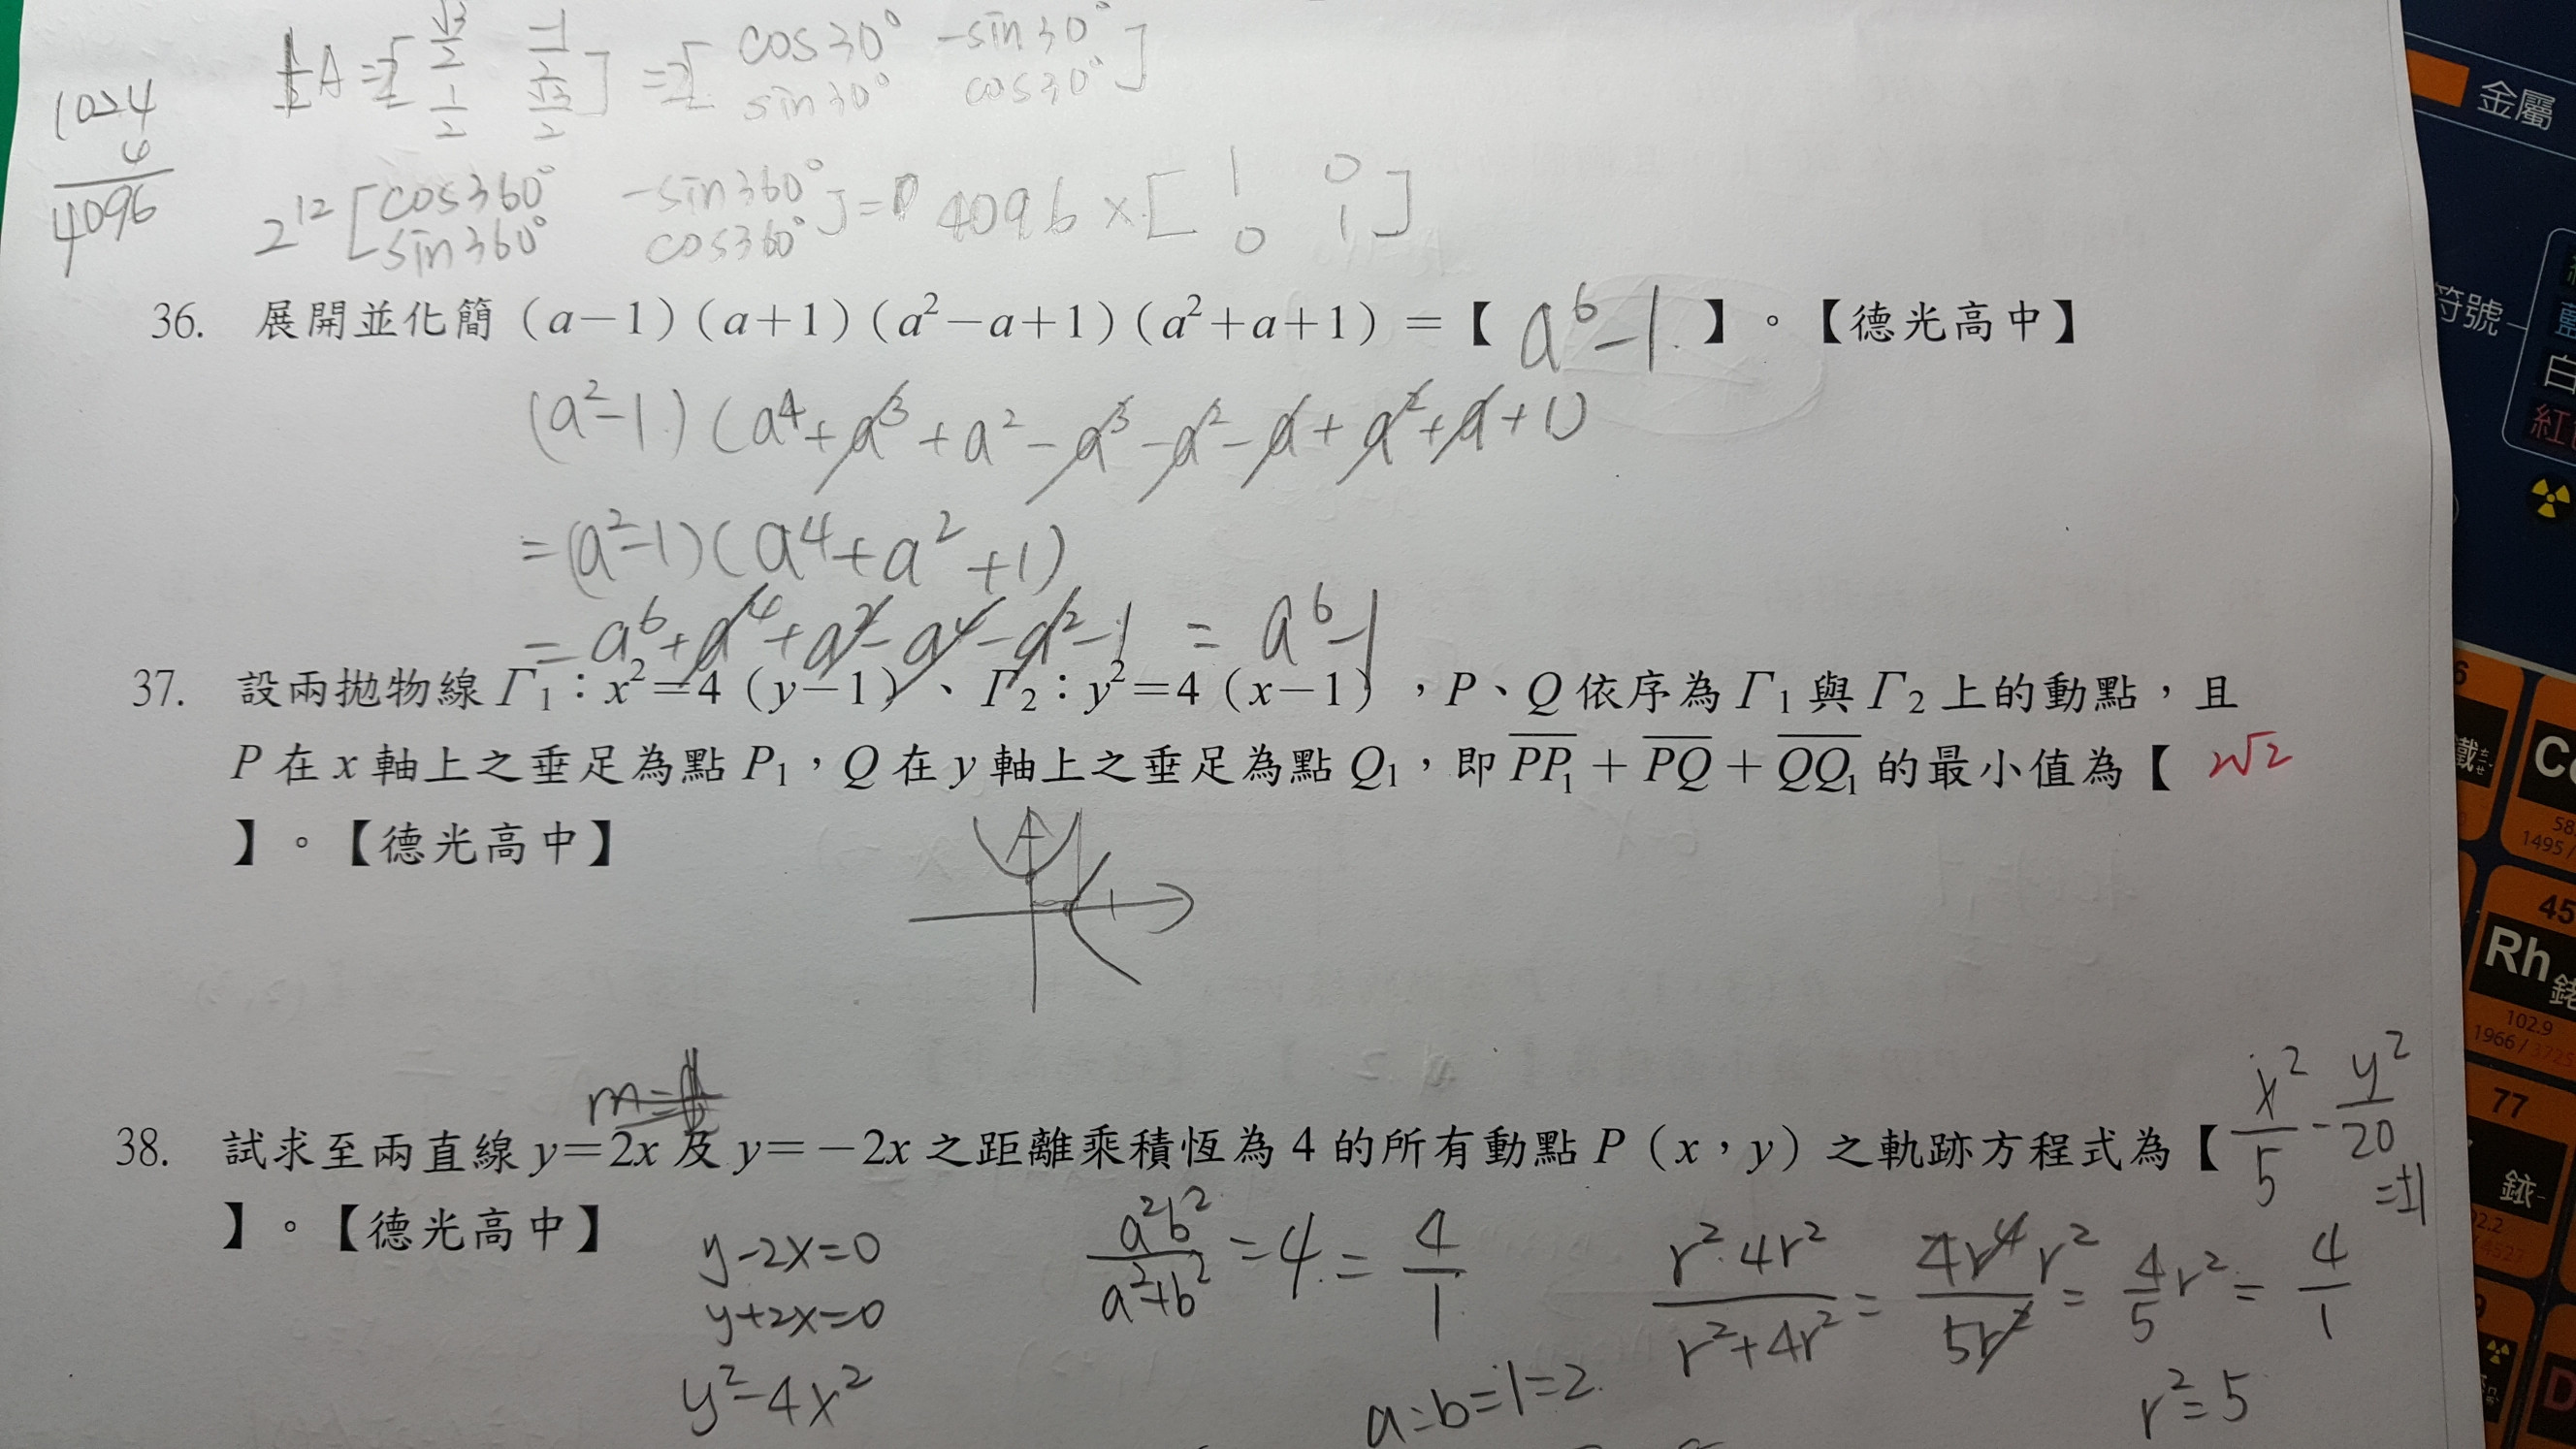 ½A=2[ √3/2 -1/2 1/2 √3/2 ] =2[ cos30° -sin30° sin30° cos30° ]
1024
4
4096
2¹² [ cos360° -sin360° sin360° cos360° ] = 4096 × [ 1 0 0 1 ]
36. 展開並化簡（a－1）（a＋1）（a²－a＋1）（a²＋a＋1）＝【 a⁶－1 】。【德光高中】
(a²-1) (a⁴+a³+a²-a³-a²-a+a²+a+1)
=(a²-1)(a⁴+a²+1)
= a⁶+a⁴+a²-a⁴-a²-1 = a⁶-1
37. 設兩拋物線Γ₁：x²＝4（y－1）、Γ₂：y²＝4（x－1），P、Q依序為Γ₁與Γ₂上的動點，且
P在x軸上之垂足為點P₁，Q在y軸上之垂足為點Q₁，即PP₁＋PQ＋QQ₁的最小值為【 2√2
】。【德光高中】
m=
38. 試求至兩直線y＝2x及y＝－2x之距離乘積恆為4的所有動點P（x，y）之軌跡方程式為【 x²/5 - y²/20 =±1
】。【德光高中】
y-2x=0
y+2x=0
y²-4x²
a²b²/a²+b² =4= 4/1
a:b=1=2
r²·4r²/r²+4r² = 4r⁴r²/5r² = 4/5 r² = 4/1
r²=5
金屬
符號
白
紅
鐵
Co
58
1495 /
45
Rh
銠
102.9
1966 / 3727
77
銥